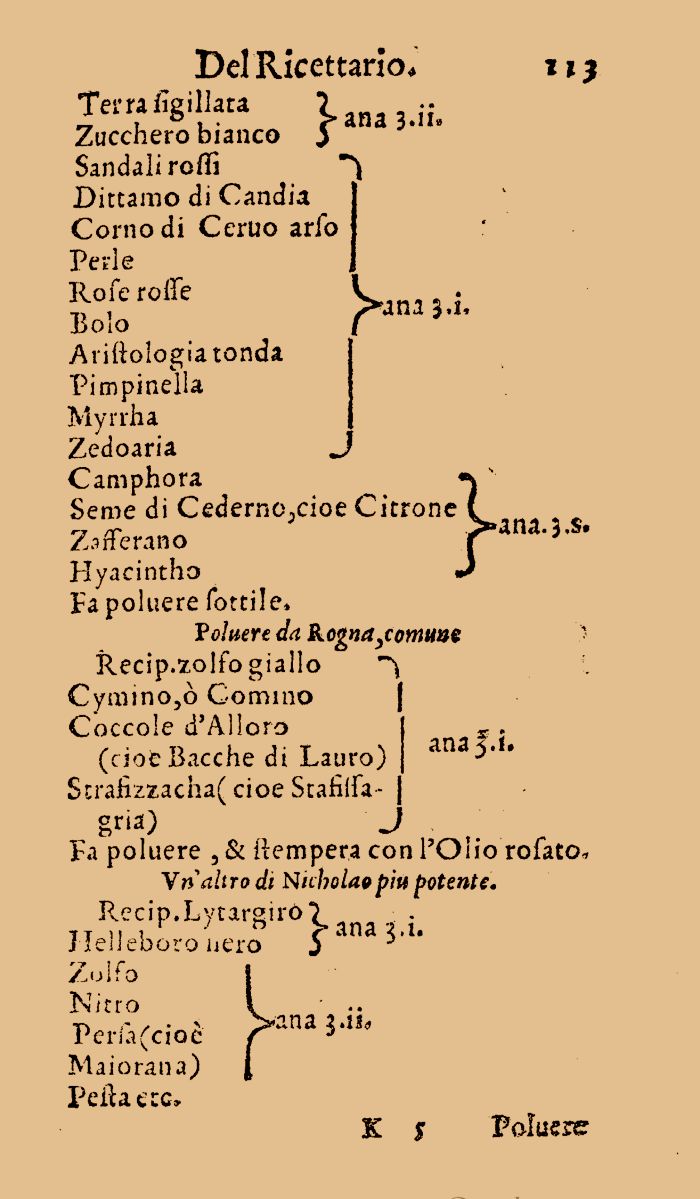 Del Ricettario. 113
Terra ſigillata
Zucchero bianco } ana ʒ.ii.
Sandali roſſi
Dittamo di Candia
Corno di Ceruo arſo
Perle
Roſe roſſe
Bolo } ana ʒ.i.
Ariſtologia tonda
Pimpinella
Myrrha
Zedoaria
Camphora
Seme di Cederno,cioe Citrone
Zafferano } ana.ʒ.s.
Hyacintho
Fa poluere ſottile.
Poluere da Rogna,comune
Recip.zolfo giallo
Cymino,ò Comino
Coccole d'Alloro
(cioe Bacche di Lauro) } ana ℥.i.
Strafizzacha( cioe Stafiſſa-
gria)
Fa poluere , & ſtempera con l'Olio roſato.
Vn'altro di Nicholao piu potente.
Recip.Lytargiro
Helleboro nero } ana ʒ.i.
Zolfo
Nitro
Perſa(cioè } ana ʒ.ii.
Maiorana)
Peſta etc.
K 5 Poluere